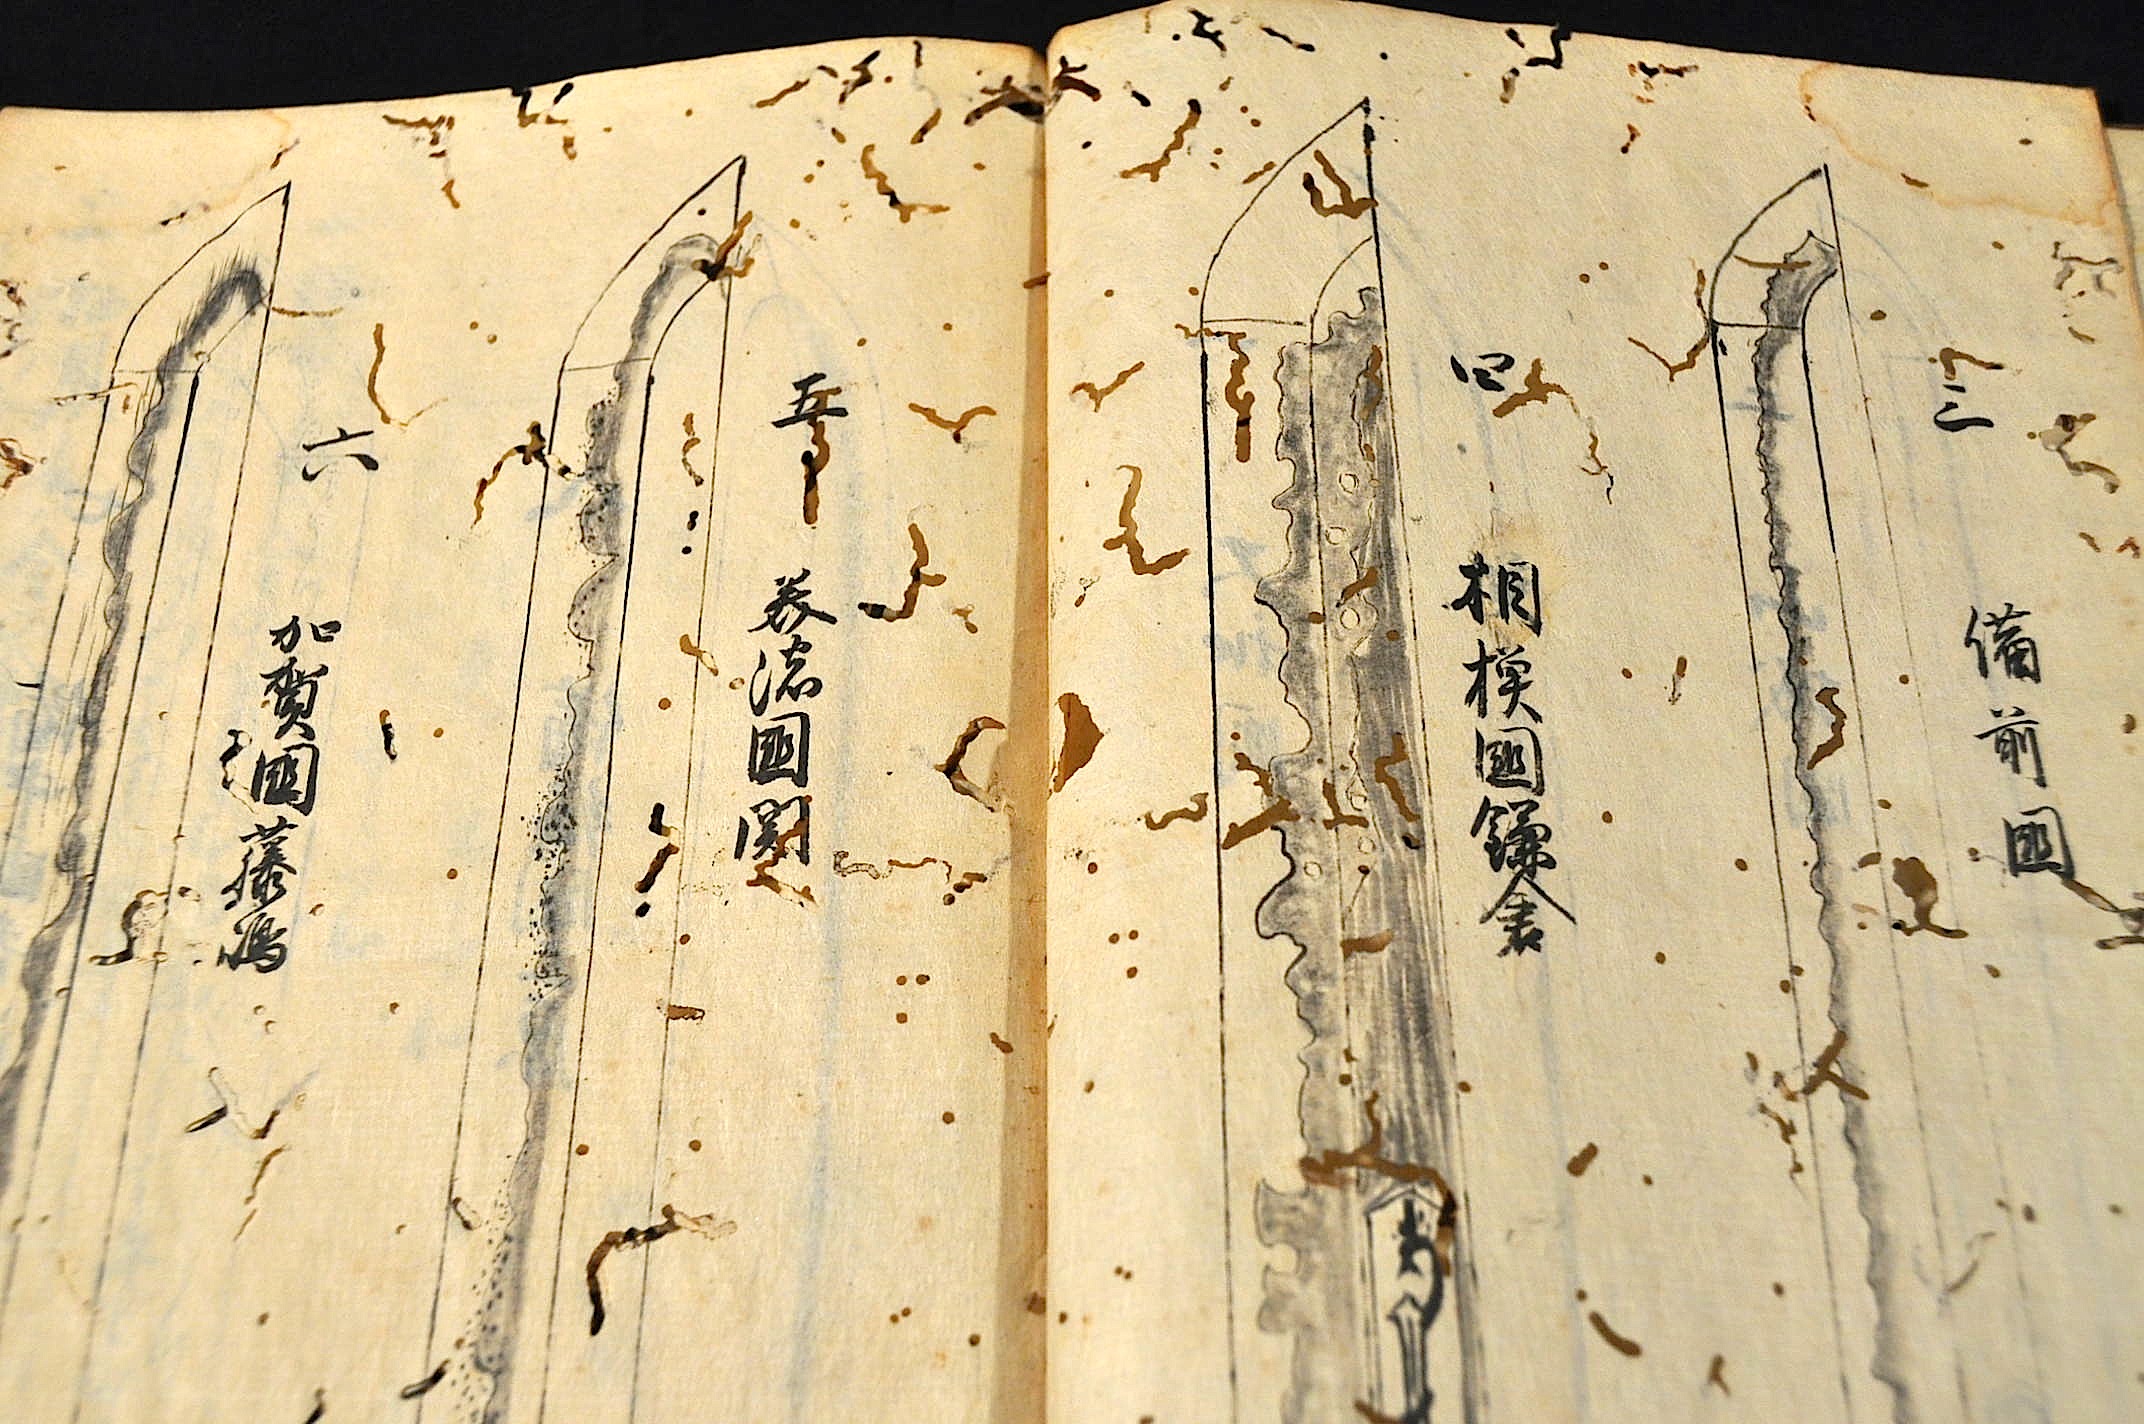 三
備前国
四
相模国鎌倉
五
美濃国関
六
加賀国藤嶋